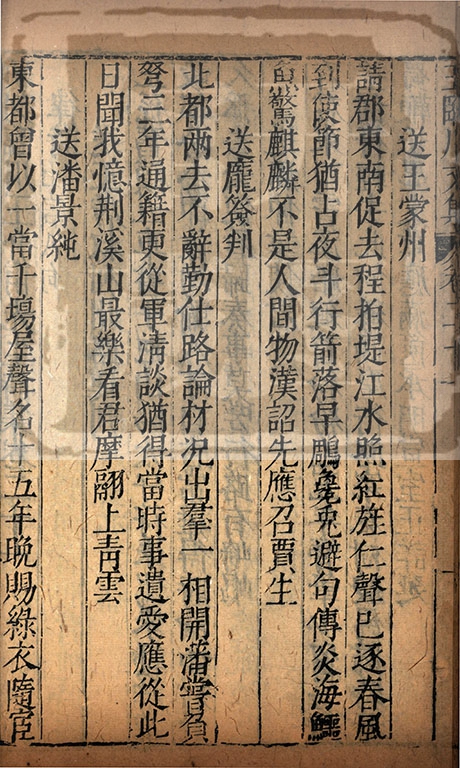 王臨川文集卷二十
送王蒙州
請郡東南促去程拍堤江水照紅旌仁聲已逐春風
到使節猶占夜斗行箭落早鵰毚兔避句傳炎海鱷
魚驚麒麟不是人間物漢詔先應召賈生
送龐簽判
北都兩去不辭勤仕路論材況出羣一相開藩嘗負
弩三年通籍更從軍清談猶得當時事遺愛應從此
日聞我憶荆溪山最樂看君摩翮上青雲
送潘景純
東都曾以一當千塲屋聲名十五年晚賜綠衣隨宦